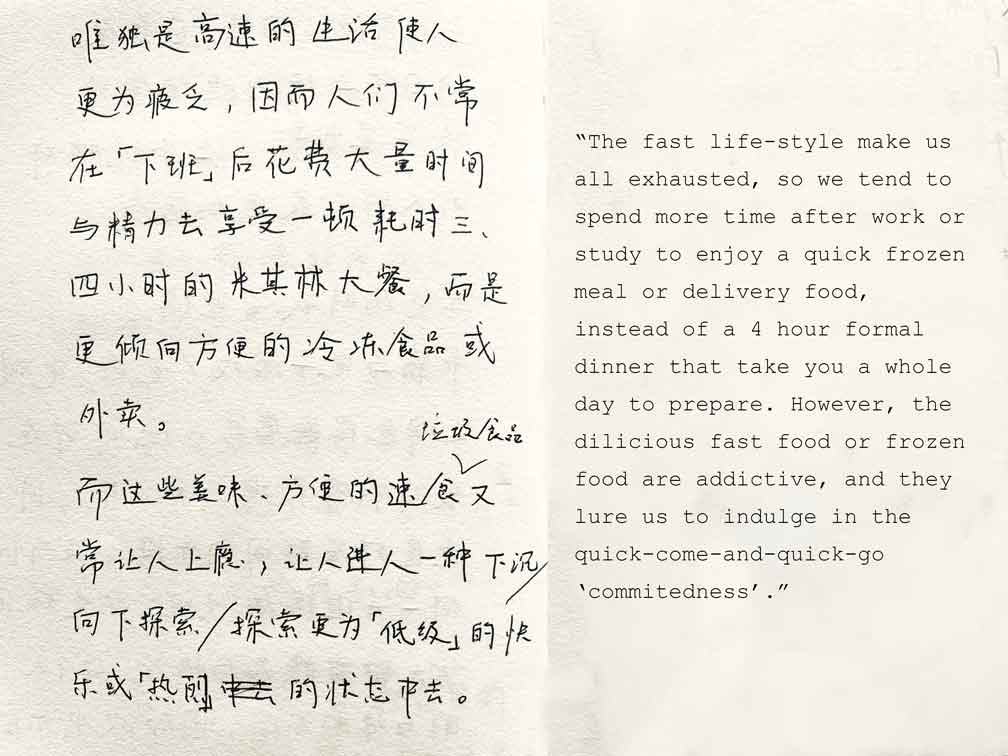 唯独是高速的生活使人
更为疲乏，因而人们不常
在「下班」后花费大量时间
与精力去享受一顿耗时三、
四小时的米其林大餐，而是
更倾向方便的冷冻食品或
外卖。
垃圾食品
而这些美味、方便的速食又
常让人上瘾，让人进入一种下沉/
向下探索/探索更为「低级」的快
乐或「热烈」的状态中去。
“The fast life-style make us
all exhausted, so we tend to
spend more time after work or
study to enjoy a quick frozen
meal or delivery food,
instead of a 4 hour formal
dinner that take you a whole
day to prepare. However, the
dilicious fast food or frozen
food are addictive, and they
lure us to indulge in the
quick-come-and-quick-go
‘commitedness’.”